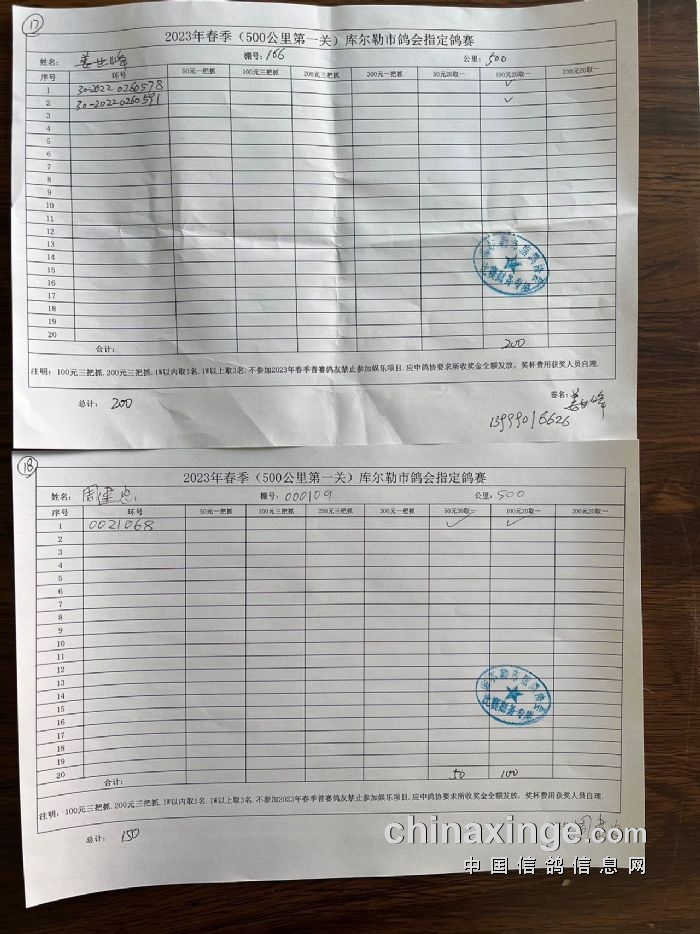 17
2023年春季（500公里第一关）库尔勒市鸽会指定鸽赛
姓名： 姜世峰 棚号：166 公里：500
序号 环号 50元一把抓 100元三把抓 200元三把抓 300元一把抓 50元20取一 100元20取一 200元20取一
1 30-2022 0260578 ✓
2 30-2022 0260591 ✓
3
4
5
6
7
8
9
10
11
12
13
14
15
16
17
18
19
20
合计： 200
注明：100元三把抓.200元三把抓.1W以内取1名.1W以上取3名.不参加2023年春季普赛鸽友禁止参加娱乐项目.应中鸽协要求所收奖金全额发放，奖杯费用获奖人员自理.
总计： 200 签名：姜世峰
13999016626
18
2023年春季（500公里第一关）库尔勒市鸽会指定鸽赛
姓名： 周建忠 棚号：000109 公里：500
序号 环号 50元一把抓 100元三把抓 200元三把抓 300元一把抓 50元20取一 100元20取一 200元20取一
1 0021068 ✓ ✓
2
3
4
5
6
7
8
9
10
11
12
13
14
15
16
17
18
19
20
合计： 50 100
注明：100元三把抓.200元三把抓.1W以内取1名.1W以上取3名.不参加2023年春季普赛鸽友禁止参加娱乐项目.应中鸽协要求所收奖金全额发放，奖杯费用获奖人员自理.
总计： 150 周建
chinaxinge.com
中国信鸽信息网